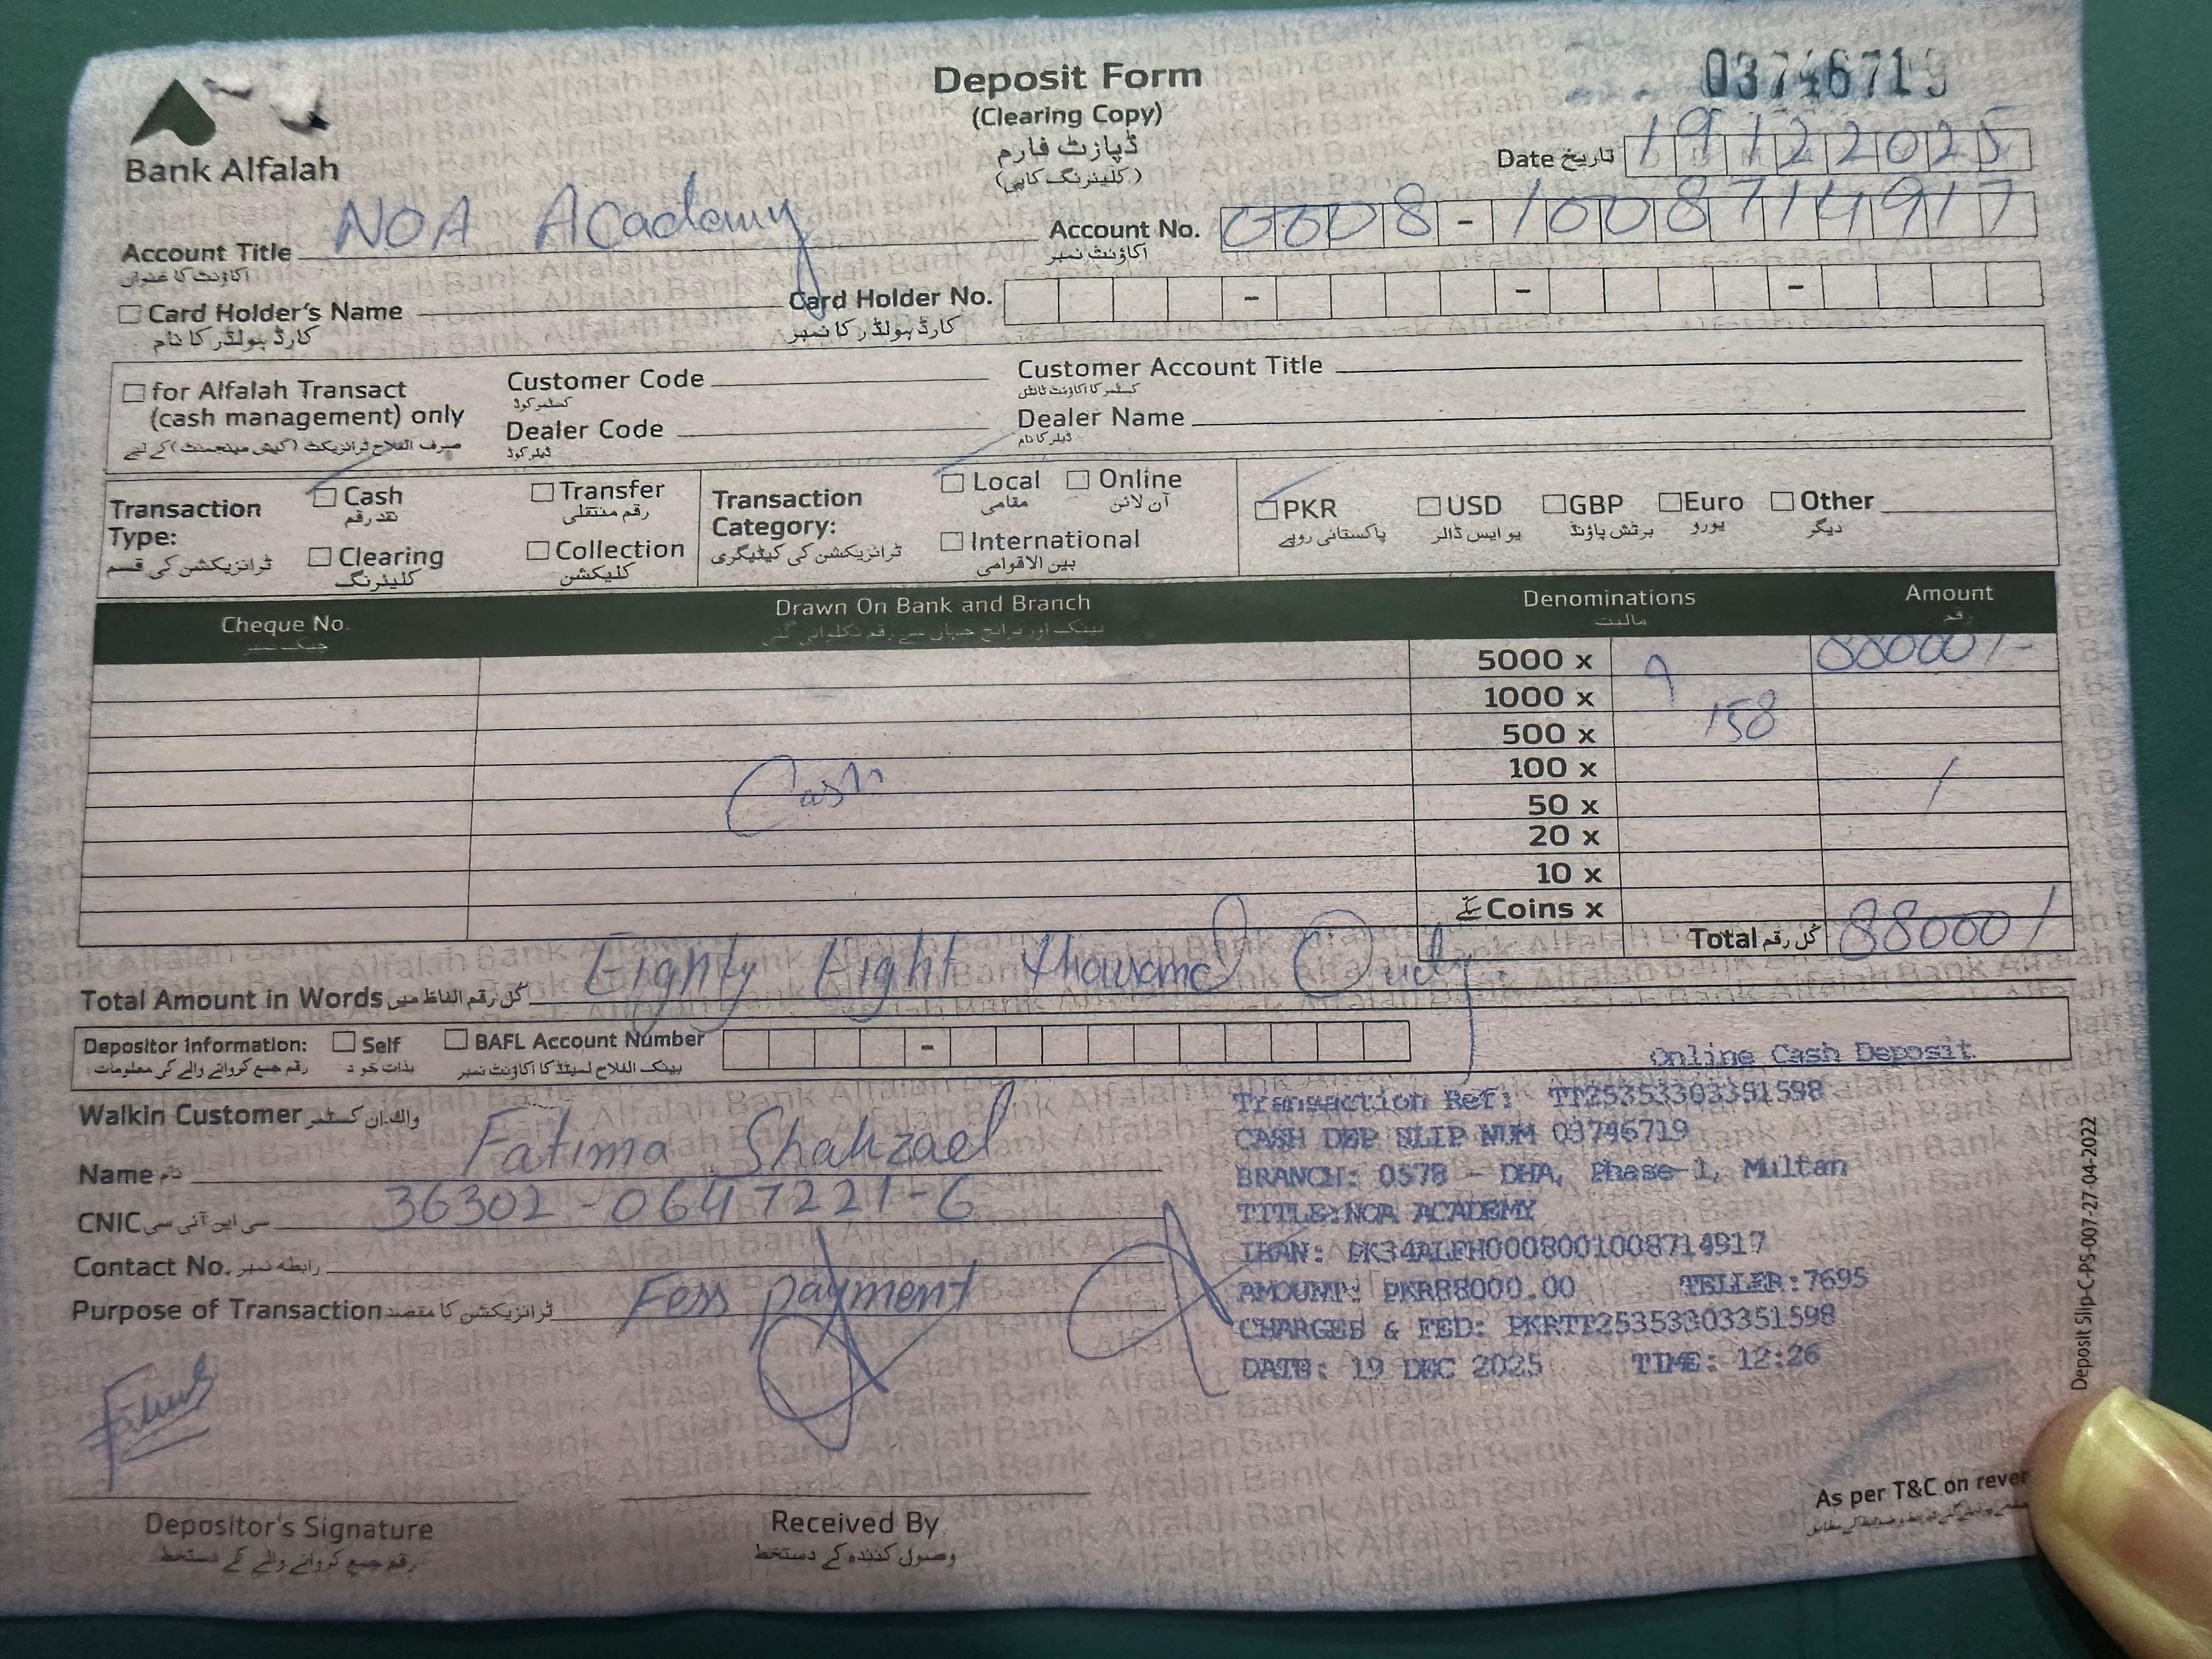 Deposit Form
03746719
(Clearing Copy)
ڈپازٹ فارم
(کلیئرنگ کاپی)
Bank Alfalah
Date تاریخ 19122025
Account Title NOA Academy
اکاؤنٹ کا عنوان
Account No. 0008-1008714917
اکاؤنٹ نمبر
Card Holder's Name
کارڈ ہولڈر کا نام
Card Holder No. - - -
کارڈ ہولڈر کا نمبر
for Alfalah Transact
(cash management) only
صرف الفلاح ٹرانزیکٹ (کیش مینجمنٹ) کے لیے
Customer Code
کسٹمر کوڈ
Customer Account Title
کسٹمر کا اکاؤنٹ ٹائٹل
Dealer Code
ڈیلر کوڈ
Dealer Name
ڈیلر کا نام
Transaction Type:
ٹرانزیکشن کی قسم
Cash نقد رقم
Transfer رقم منتقلی
Clearing کلیئرنگ
Collection کلیکشن
Transaction Category:
ٹرانزیکشن کی کیٹیگری
Local مقامی
Online آن لائن
International بین الاقوامی
PKR پاکستانی روپے
USD یو ایس ڈالر
GBP برٹش پاؤنڈ
Euro یورو
Other دیگر
Cheque No. Drawn On Bank and Branch Denominations Amount
چیک نمبر بینک اور برانچ جہاں سے رقم نکلوائی گئی مالیت رقم
5000 x 9 88000/-
1000 x
500 x 158
100 x
Cash
50 x
20 x
10 x
سکے Coins x
Total کل رقم 88000/
Total Amount in Words کل رقم الفاظ میں Eighty Eight thousand Only
Depositor Information: Self BAFL Account Number -
رقم جمع کروانے والے کی معلومات: بذات خود بینک الفلاح لمیٹڈ کا اکاؤنٹ نمبر
Online Cash Deposit
Walkin Customer واک ان کسٹمر
Name نام Fatima Shahzad
CNIC سی این آئی سی 36302-0647221-6
Contact No. رابطہ نمبر
Purpose of Transaction ٹرانزیکشن کا مقصد Fess payment
Transaction Ref: TT25353303351598
CASH DEP SLIP NUM 03746719
BRANCH: 0578 - DHA, Phase-1, Multan
TITLE:NOA ACADEMY
IBAN: PK34ALFH0008001008714917
AMOUNT: PKR88000.00 TELLER:7695
CHARGES & FED: PKRTT25353303351598
DATE: 19 DEC 2025 TIME: 12:26
Depositor's Signature
رقم جمع کروانے والے کے دستخط
Received By
وصول کنندہ کے دستخط
As per T&C on rever
Deposit Slip-C-PS-007-27-04-2022